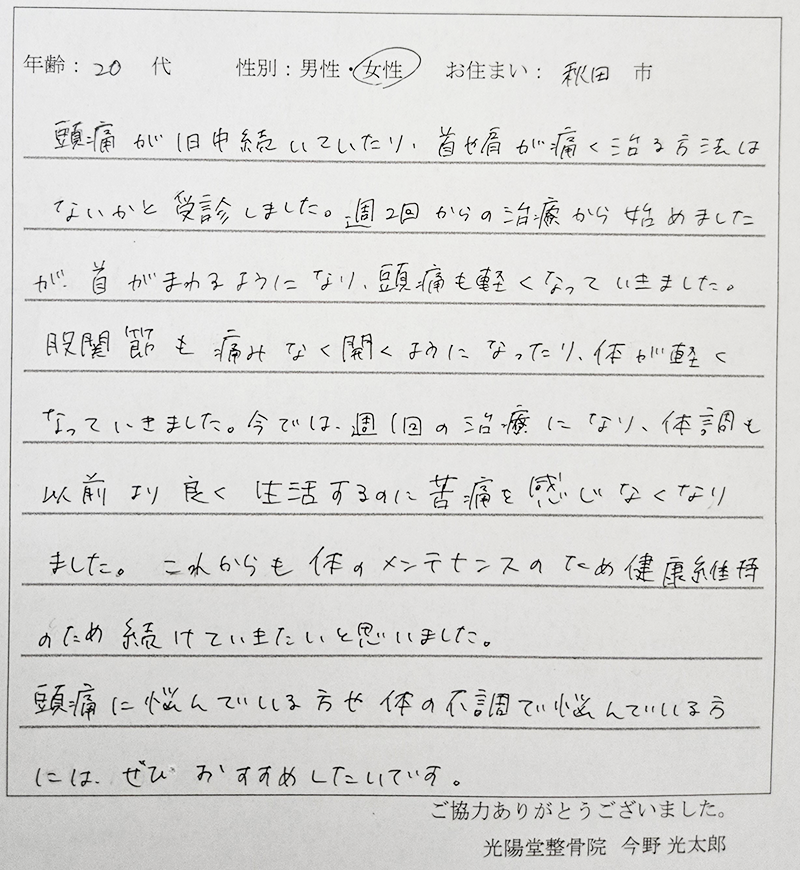 年齢：20 代 性別：男性・女性 お住まい：秋田 市
頭痛が1日中続いていたり、首や肩が痛く治る方法は
ないかと受診しました。週2回からの治療から始めました
が、首がまわるようになり、頭痛も軽くなっていきました。
股関節も痛みなく開くようになったり、体が軽く
なっていきました。今では、週1回の治療になり、体調も
以前より良く生活するのに苦痛を感じなくなり
ました。これからも体のメンテナンスのため健康維持
のため続けていきたいと思いました。
頭痛に悩んでいる方や体の不調で悩んでいる方
には、ぜひおすすめしたいです。
ご協力ありがとうございました。
光陽堂整骨院 今野 光太郎